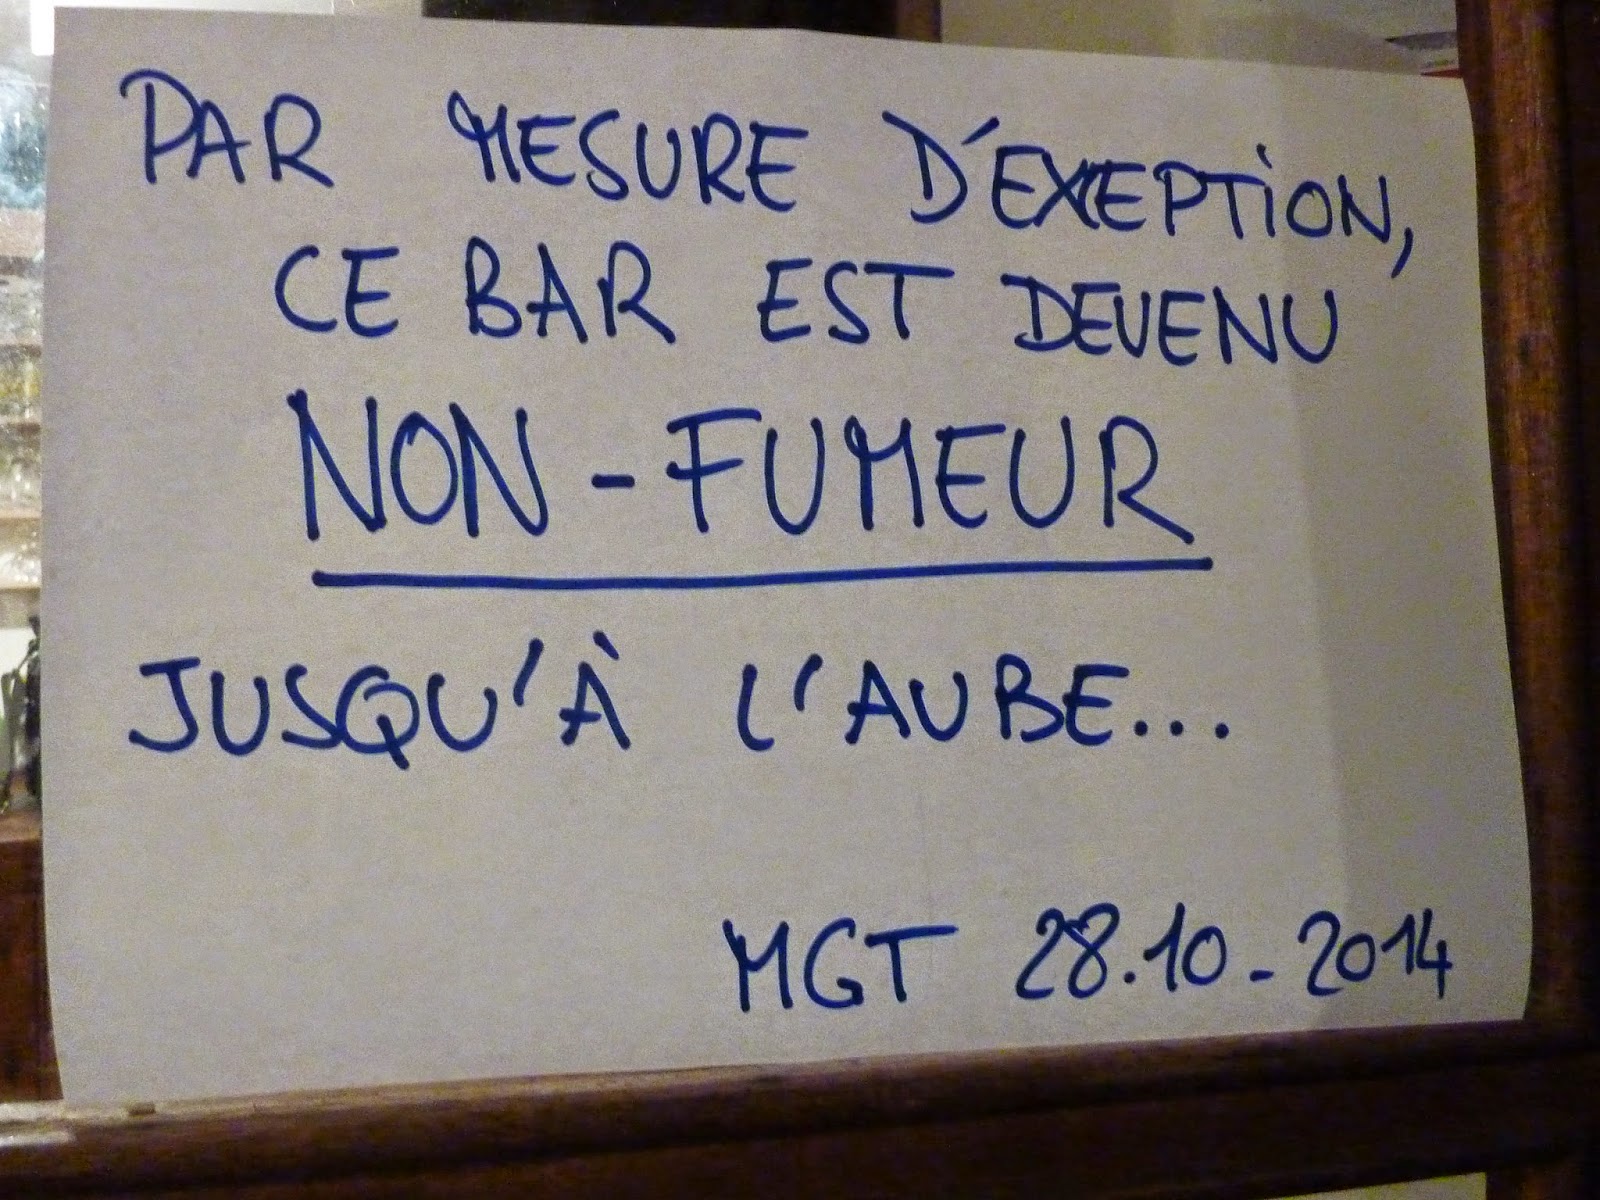 PAR MESURE D'EXEPTION,
CE BAR EST DEVENU
NON-FUMEUR
JUSQU'À L'AUBE...
MGT 28.10-2014